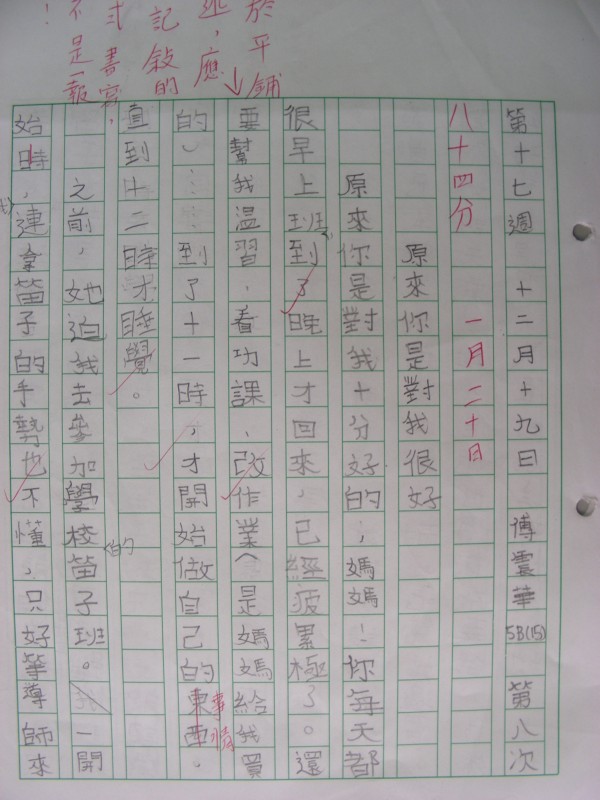 於平鋪
述，應
記敍的
式書寫，
不是「報
！
第十七週 十二月十九日 傅雲華 5B(15) 第八次
八十四分 一月二十日
原來你是對我很好
原來你是對我十分好的；媽媽！你每天都
很早上班，到了晚上才回來，已經疲累極了。還
要幫我溫習、看功課、改作業（是媽媽給我買
的）……到了十一時，才開始做自己的東西事情。
直到十二時才睡覺。
之前，她迫我去參加學校的笛子班。我一開
始時，連拿笛子的手勢也不懂，只好等導師來